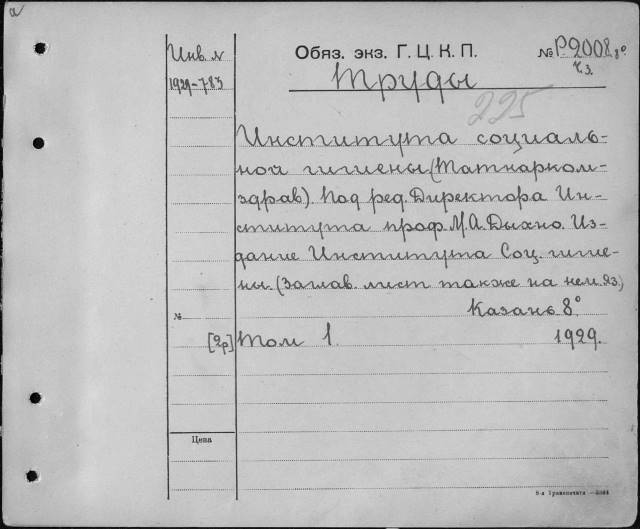 а
Инв. №
1929-783
Обяз. экз. Г. Ц. К. П.
№ Р2008 8°
ч.з.
Труды
225
Института социаль-
ной гигиены (Татнарком-
здрав). Под ред. Директора Ин-
ститута проф. М.А. Дыхно. Из-
дание Института Соц. гигие-
ны. (Заглав. лист также на нем. яз.)
Казань 8°
№
[2р] Том 1. 1929.
Цена